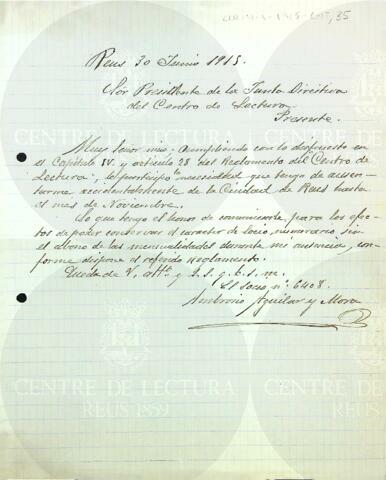 Reus 30 Junio 1915.
Sor Presidente de la Junta Directiva
del Centro de Lectura
Presente.
Muy señor mio: Cumpliendo con lo dispuesto en
el Capítulo IV. y artículo 28 del Reglamento del Centro de
Lectura, le participo la necesidad que tengo de ausen-
tarme accidentalmente de la Ciudad de Reus hasta
el mes de Noviembre.
Lo que tengo el honor de comunicarle para los efec-
tos de poder conservar el caracter de socio numerario, sin
el abono de las mensualidades durante mi ausencia, con-
forme dispone el referido Reglamento.
Queda de V. atto y S. S. q. b. s. m.
El socio nº 6408.
Ambrosio Aguilar y Mora
CENTRE DE LECTURA
REUS 1859
CENTRE DE LECTURA
REUS 1859